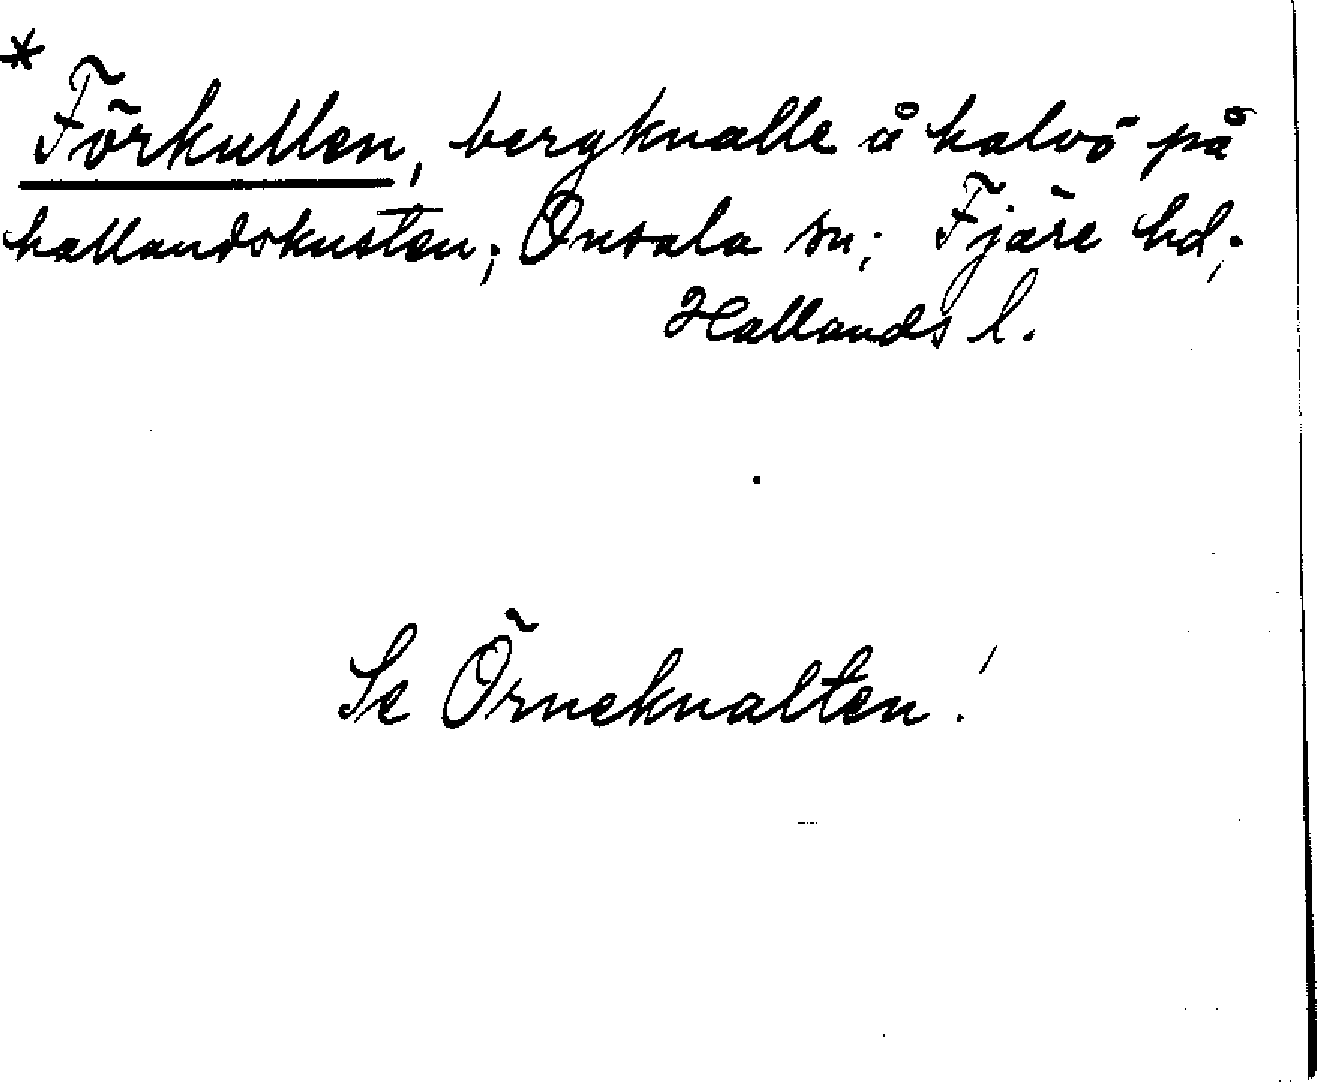 * Förkullen, bergknalle å halvö på
hallandskusten; Onsala sn; Fjäre hd;
Hallands l.
Se Örneknalten!